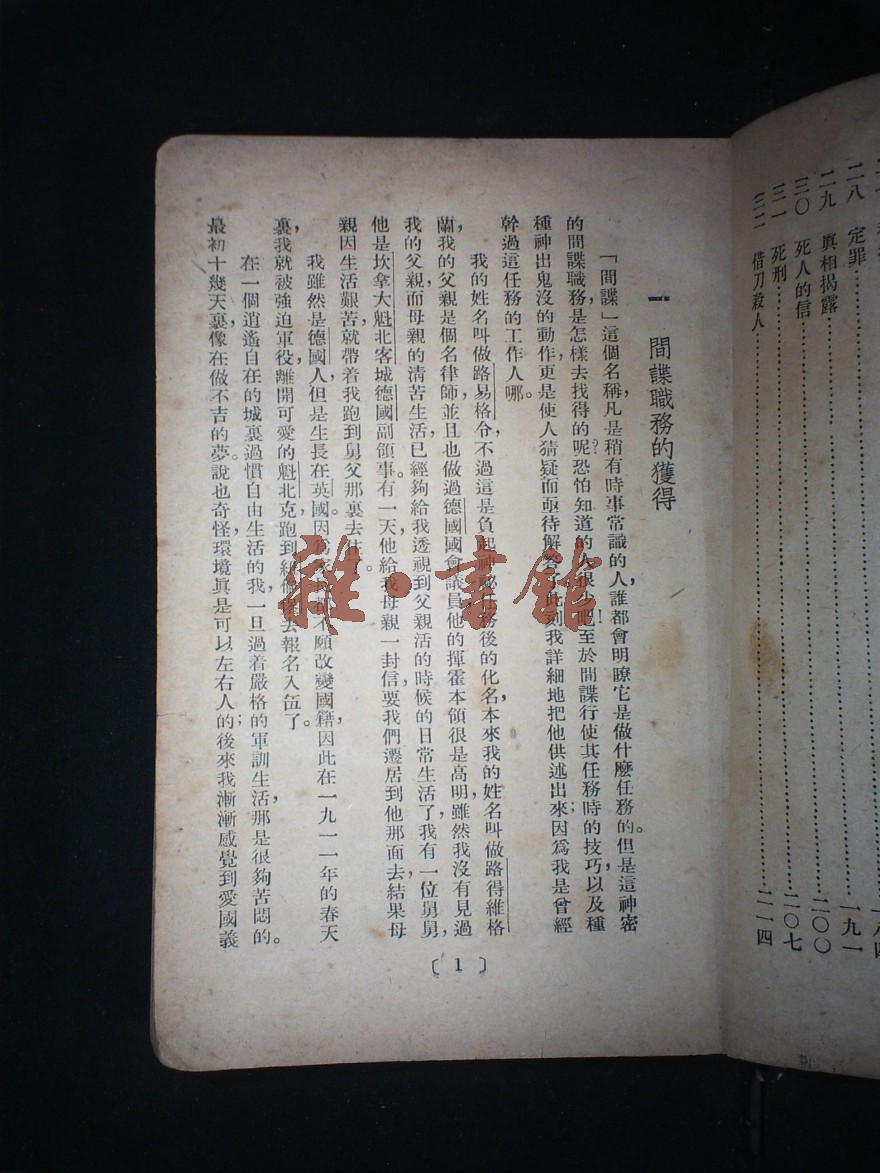 二八 定罪
二九 眞相揭露 一九一
三〇 死人的信 二〇〇
三一 死刑 二〇七
三二 借刀殺人 二一四
一 間諜職務的獲得
「間諜」這個名稱，凡是稍有時事常識的人，誰都會明瞭它是做什麼任務的。但是這神密
的間諜職務是怎樣去找得的呢？恐怕知道的人很少吧！至於間諜行使其任務時的技巧，以及種
種神出鬼沒的動作，更是使人猜疑而亟待解答了。此刻我詳細地把他供述出來；因爲我是曾經
幹過這任務的工作人哪。
我的姓名叫做路易格分，不過這是負起神祕任務後的化名，本來我的姓名叫做路得維格
蘭，我的父親是個名律師，並且也做過德國國會議員，他的揮霍本領很是高明，雖然我沒有見過
我的父親，而母親的清苦生活，已經夠給我透視到父親活的時候的日常生活了，我有一位舅舅，
他是坎拿大魁北客城德國副領事。有一天，他給我母親一封信，要我們遷居到他那面去，結果母
親因生活艱苦，就帶着我跑到舅父那裏去住了。
我雖然是德國人，但是生長在英國，因爲家母不願改變國籍，因此在一九一一年的春天
裏，我就被強迫軍役，離開可愛的魁北克，跑到紐倫堡去報名入伍了。
在一個逍遙自在的城裏過慣自由生活的我，一旦過着嚴格的軍訓生活，那是很夠苦悶的。
最初十幾天裏，像在做不吉的夢。說也奇怪，環境眞是可以左右人的；後來我漸漸感覺到愛國義
〔1〕
雜·書館